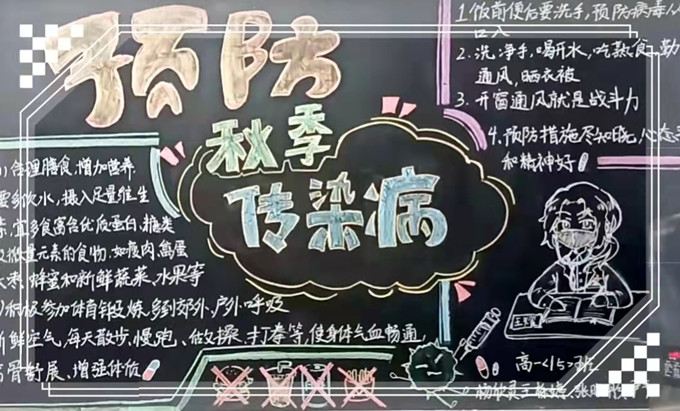 预防
秋季
传染病
1. 饭前便后要洗手,预防病毒从
口入
2. 洗净手,喝开水,吃熟食,勤
通风,晒衣被
3. 开窗通风就是战斗力
4. 预防措施尽知晓,心态
和精神好
合理膳食,增加营养
要多饮水,摄入足量维生
素,宜多食富含优质蛋白,糖类
及微量元素的食物,如瘦肉,禽蛋
大枣,蜂蜜和新鲜蔬菜,水果等
积极参加体育锻炼,多到郊外,户外呼吸
新鲜空气,每天散步,慢跑,做操,打拳等,使身体气血畅通,
筋骨舒展,增强体质
高一<15>班